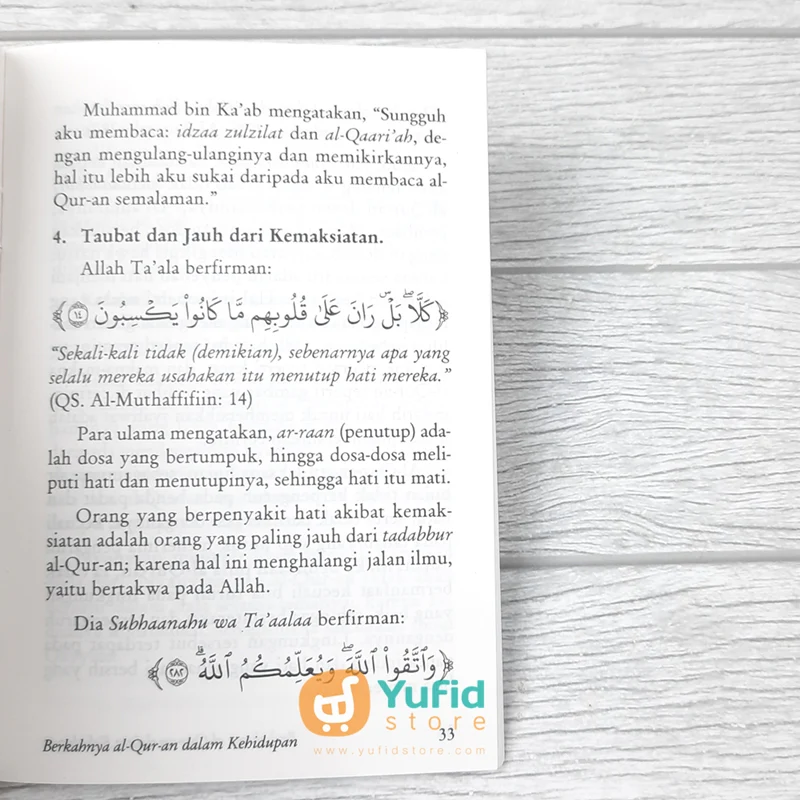 Muhammad bin Ka'ab mengatakan, "Sungguh
aku membaca: idzaa zulzilat dan al-Qaari'ah, de-
ngan mengulang-ulanginya dan memikirkannya,
hal itu lebih aku sukai daripada aku membaca al-
Qur-an semalaman."
4. Taubat dan Jauh dari Kemaksiatan.
Allah Ta'ala berfirman:
﴿كَلَّا ۖ بَلْ ۜ رَانَ عَلَىٰ قُلُوبِهِم مَّا كَانُوا۟ يَكْسِبُونَ ١٤﴾
"Sekali-kali tidak (demikian), sebenarnya apa yang
selalu mereka usahakan itu menutup hati mereka."
(QS. Al-Muthaffifiin: 14)
Para ulama mengatakan, ar-raan (penutup) ada-
lah dosa yang bertumpuk, hingga dosa-dosa meli-
puti hati dan menutupinya, sehingga hati itu mati.
Orang yang berpenyakit hati akibat kemak-
siatan adalah orang yang paling jauh dari tadabbur
al-Qur-an; karena hal ini menghalangi jalan ilmu,
yaitu bertakwa pada Allah.
Dia Subhaanahu wa Ta'aalaa berfirman:
﴿وَٱتَّقُوا۟ ٱللَّهَ ۖ وَيُعَلِّمُكُمُ ٱللَّهُ ۗ ٢٨٢﴾
Yufid
store
www.yufidstore.com
Berkahnya al-Qur-an dalam Kehidupan 33